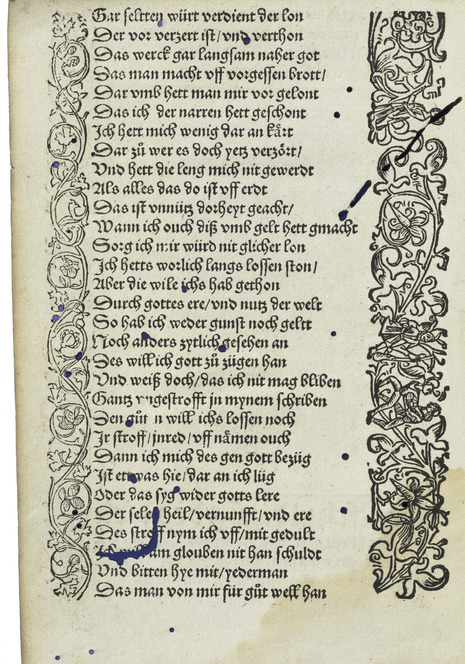 Gar seltten würt verdient der lon
Der vor verzert ist/ vnd verthon
Das werck gar langsam naher got
Das man macht vff vorgessen brott/
Dar vmb hett man mir vor gelont
Das ich der narren hett geschont
Ich hett mich wenig dar an kårt
Dar zů wer es doch yetz verzört/
Vnd hett die leng mich nit gewerdt
Als alles das do ist vff erdt
Das ist vnnütz dorheyt geacht/
Wann ich ouch diß vmb gelt hett gmacht
Sorg ich mir würd nit glicher lon
Ich hetts worlich langs lossen ston/
Aber die wile ichs hab gethon
Durch gottes ere/ vnd nutz der welt
So hab ich weder gunst noch geltt
Noch anders zytlich gesehen an
Des will ich gott zů zügen han
Vnd weiß doch/ das ich nit mag bliben
Gantz vngestrofft jn mynem schriben
Den will ichs lossen noch
Ir stroff/ jnred/ vff nåmen ouch
Dann ich mich des gen gott bezüg
Ist ettwas hie/ dar an ich lüg
Oder das syg wider gotts lere
Der selen heil/ vernunfft/ vnd ere
Des stroff nym ich vff/ mit gedult
glouben nit han schuldt
Vnd bitten hye mit/ yederman
Das man von mir für gůt well han